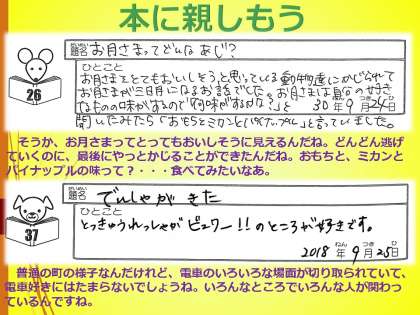 本に親しもう
題名 お月さまってどんなあじ?
ひとこと
お月さまをとてもおいしそうと思っている動物達にかじられて
お月さまが三日月になるお話でした。お月さまは自分の好き
なものの味がするので「何味がするかな?」と 30年9月24日
聞いてみたら「おもちとミカンとパイナップル」と言っていました。
26
そうか、お月さまってとってもおいしそうに見えるんだね。どんどん逃げ
ていくのに、最後にやっとかじることができたんだね。おもちと、ミカンと
パイナップルの味って?・・・食べてみたいなあ。
題名 でんしゃがきた
ひとこと
とっきゅうれっしゃがビュワー!!のところが好きです。
2018年9月25日
37
普通の町の様子なんだけれど、電車のいろいろな場面が切り取られていて、
電車好きにはたまらないでしょうね。いろんなところでいろんな人が関わっ
ているんですね。